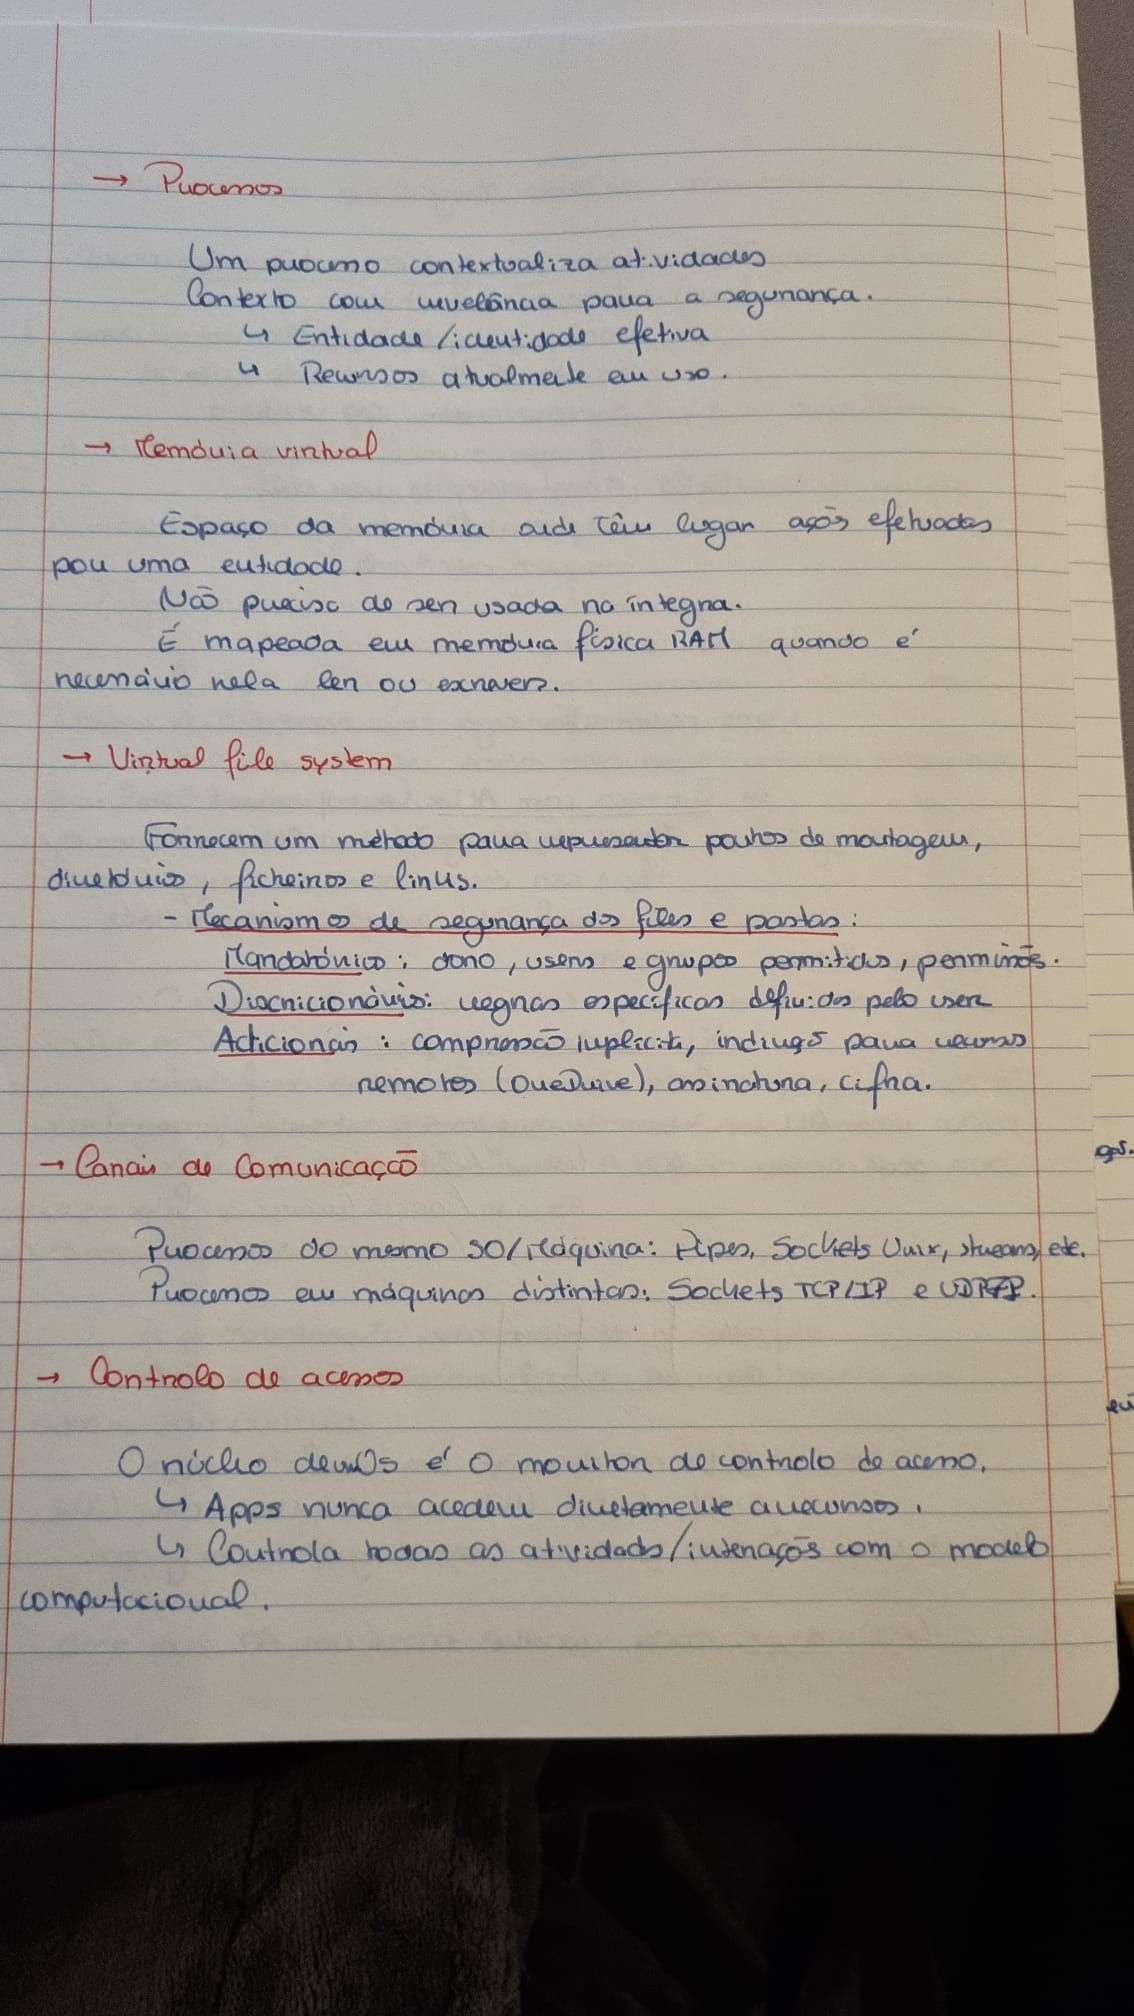 → Processos
Um processo contextualiza atividades
Contexto com relevância para a segurança.
↳ Entidade/identidade efetiva
↳ Recursos atualmente em uso.
→ Memória virtual
Espaço da memória onde têm lugar ações efetuadas
por uma entidade.
Não precisa de ser usada na íntegra.
É mapeada em memória física RAM quando é
necessário nela ler ou escrever.
→ Virtual file system
Fornecem um método para representar pontos de montagem,
diretórios, ficheiros e links.
- Mecanismos de segurança dos files e pastas:
Mandatórios: dono, users e grupos permitidos, permissões.
Discricionários: regras específicas definidas pelo user
Adicionais: compressão implícita, indireção para recursos
remotos (OneDrive), assinatura, cifra.
→ Canais de Comunicação
ges.
Processos do mesmo SO/Máquina: Pipes, Sockets Unix, streams, etc.
Processos em máquinas distintas: Sockets TCP/IP e UDP/IP.
→ Controlo de acessos
O núcleo de um OS é o monitor de controlo de acesso.
↳ Apps nunca acedem diretamente a recursos.
↳ Controla todas as atividades/interações com o modelo
computacional.